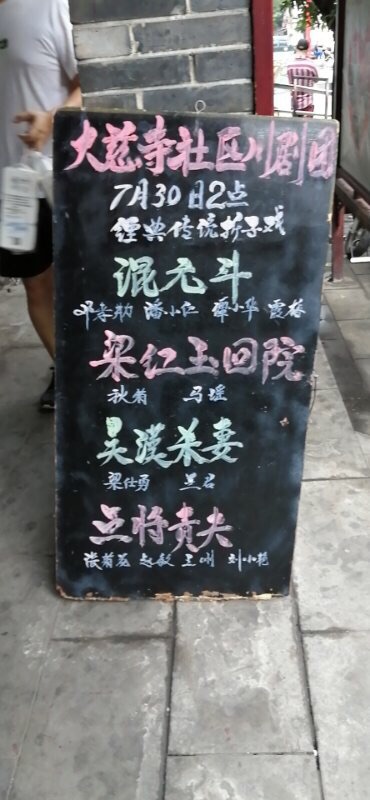 大慈寺社区川剧团
7月30日2点
经典传统折子戏
混元斗
邓孝勋 潘小仁 廖小华 霞林
梁仁玉回院
秋菊 马瑶
吴汉杀妻
梁仕勇 兰君
点将责夫
张菊花 赵敏 王州 刘小艳